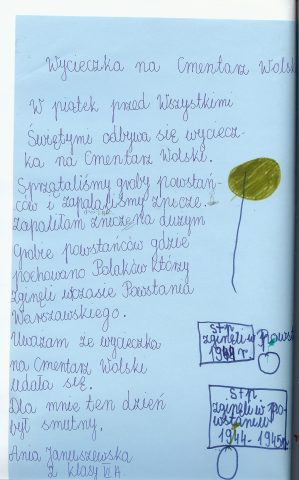 Wycieczka na Cmentarz Wolski
W piątek przed Wszystkimi
Świętymi odbywa się wyciecz-
ka na Cmentarz Wolski.
Sprzątaliśmy groby powstań-
ców i zapalaliśmy znicze.
Zapaliłam znicze na dużym
Grobie powstańców gdzie
pochowano Polaków którzy
zginęli wczasie Powstania
Warszawskiego.
Uważam że wycieczka
na Cmentarz Wolski
udała się.
Dla mnie ten dzień
był smutny.
Ania Januszewska
z klasy VI A
ś+p.
zginęli w powst
1944 r.
ś+p.
zginęli w po-
wstaniu
1944-1945r